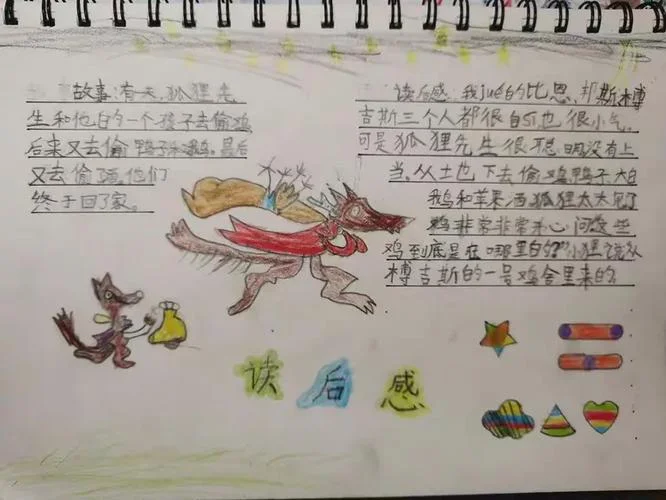 故事：有一天，狐狸先
生和他的一个孩子去偷鸡，
后来又去偷鸭子和鹅。最后
又去偷酒，他们
终于回了家。
读后感：我jué的比恩，邦斯，博
吉斯三个人都很自
可是狐狸先生很聪明没有上
当。从土也下去偷鸡、鸭子、大白
鹅和苹果酒狐狸太太见了
鸡非常非常开心问这些
鸡到底是在哪里白的？"小狸说从
博吉斯的一号鸡舍里来的。
读后感